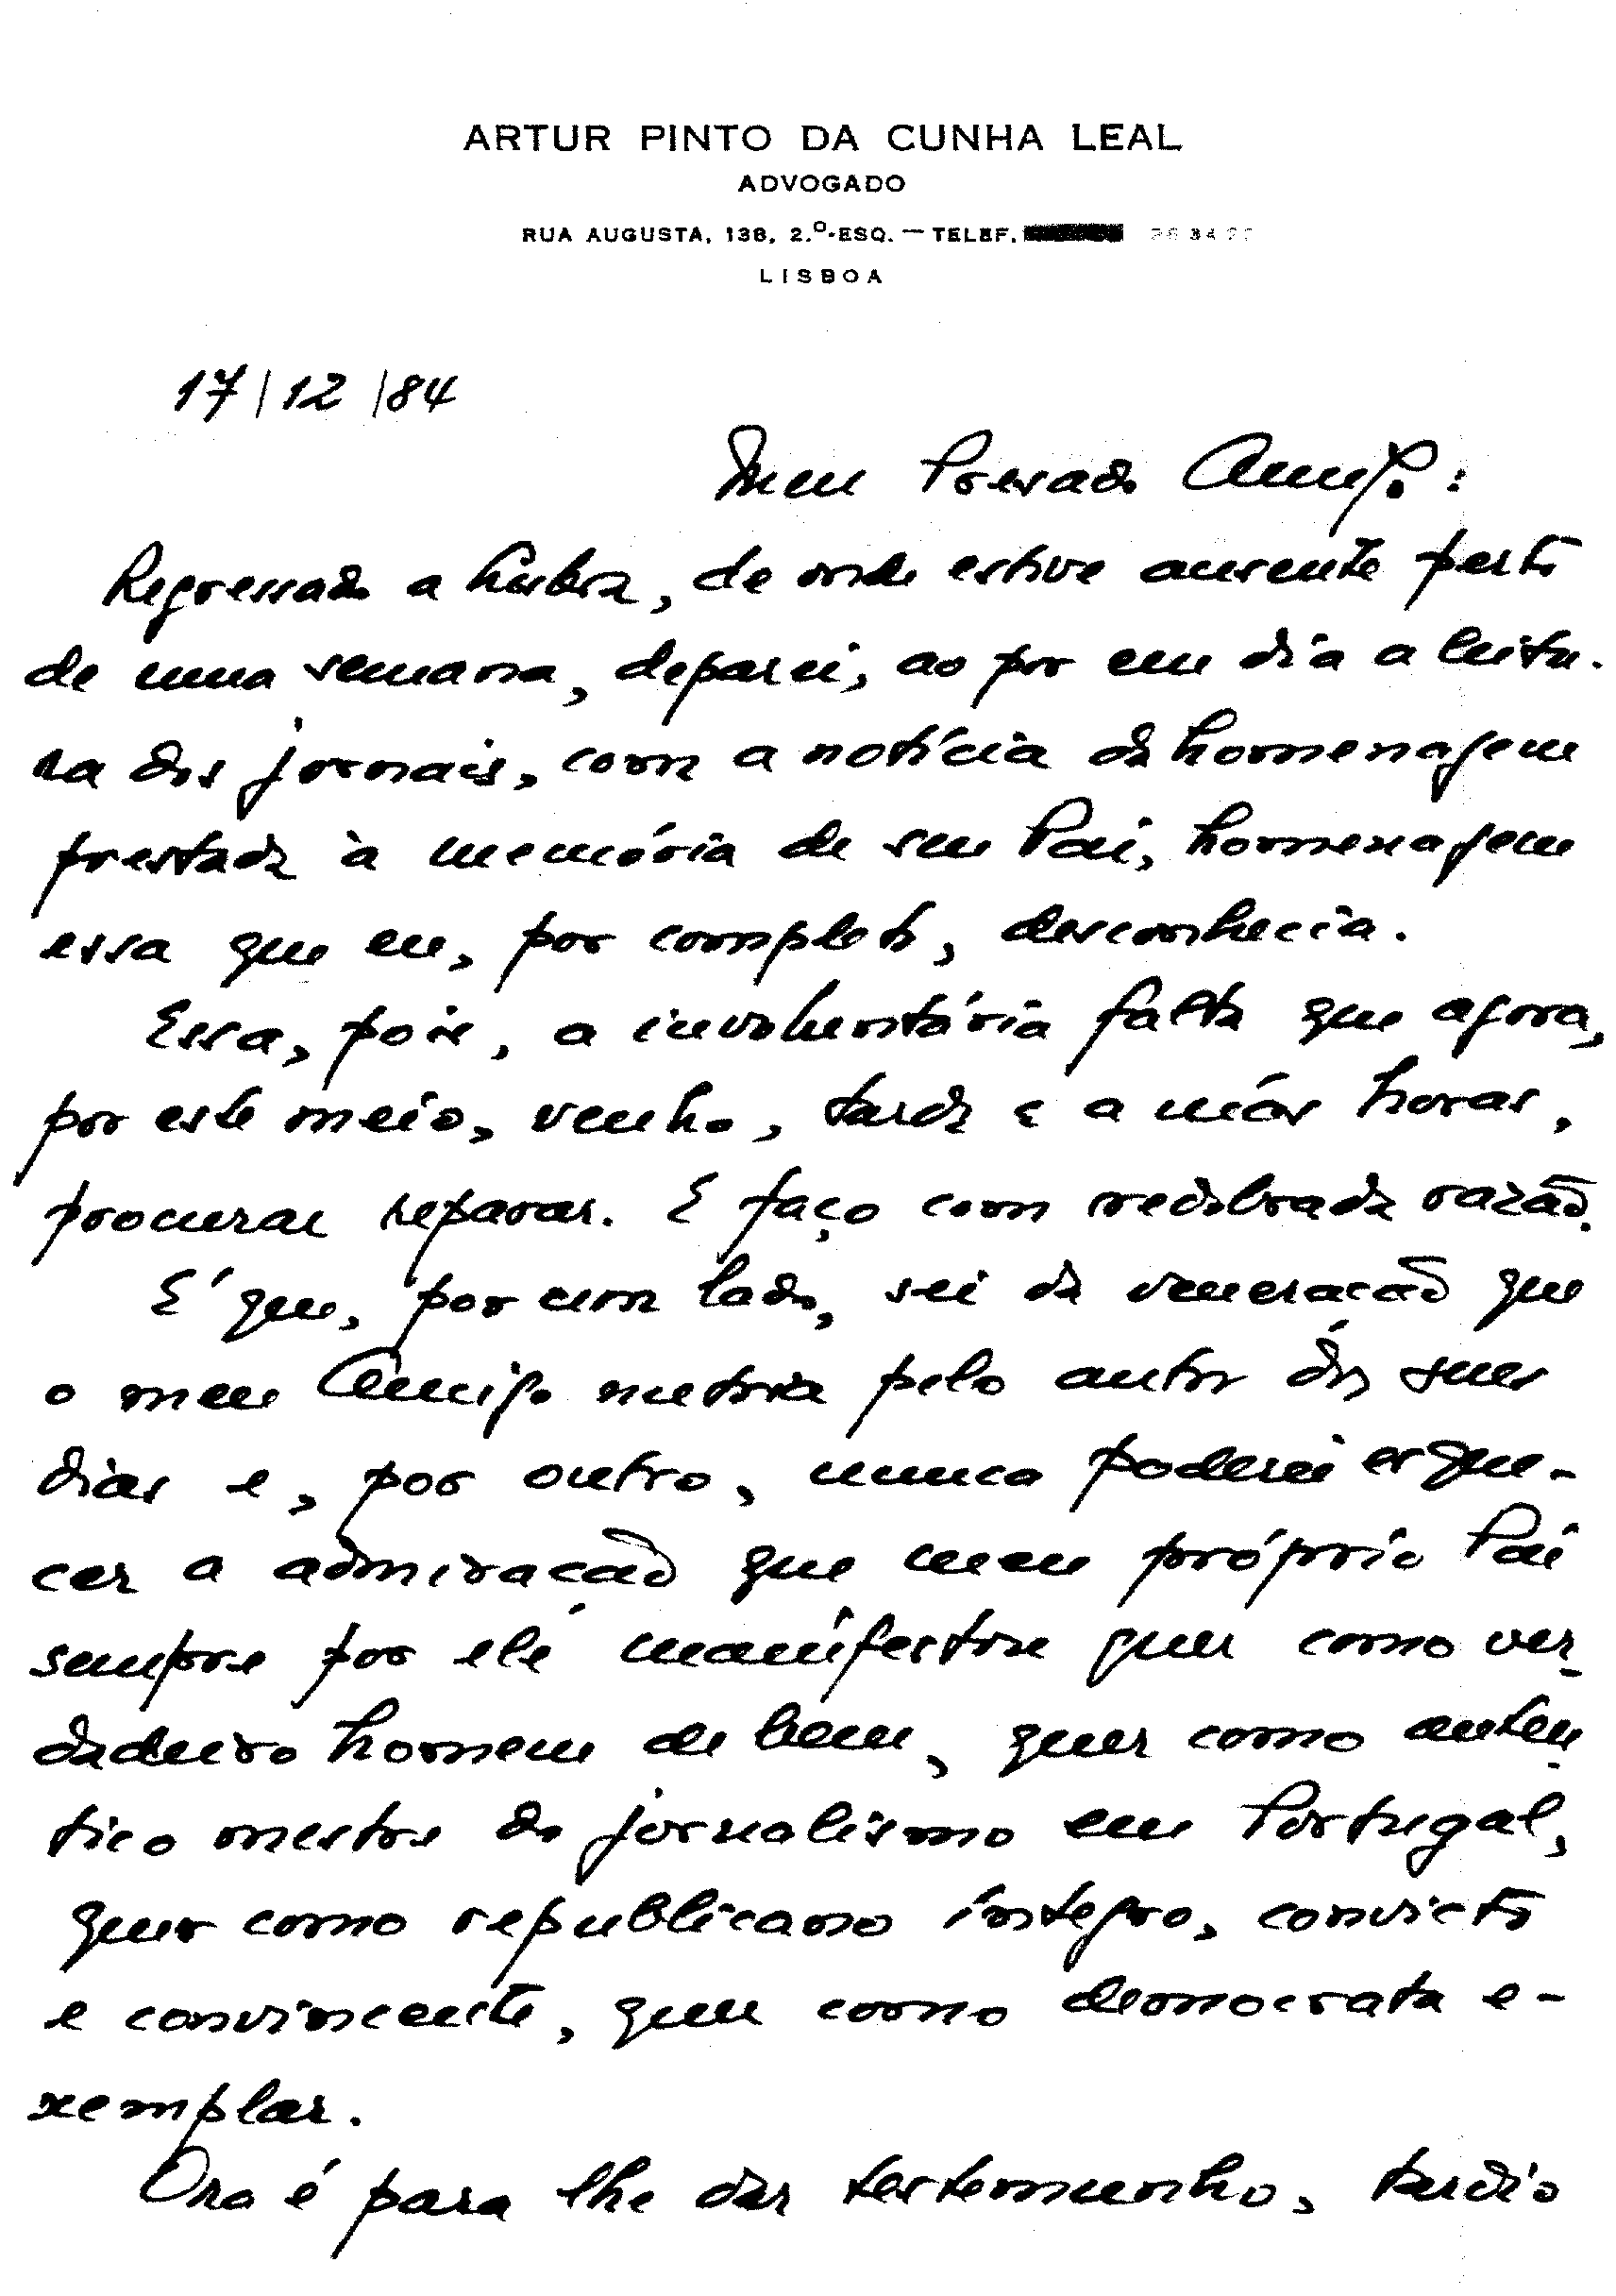 ARTUR PINTO DA CUNHA LEAL
ADVOGADO
RUA AUGUSTA, 138, 2.º-ESQ. — TELEF.
LISBOA
17/12/84
Meu Prezado Amigo:
Regressado a Lisboa, de onde estive ausente perto
de uma semana, deparei, ao por em dia a leitu-
ra dos jornais, com a notícia da homenagem
prestada à memória de seu Pai, homenagem
essa que eu, por completo, desconhecia.
Essa, pois, a involuntária falta que agora,
por este meio, venho, tarde e a más horas,
procurar reparar. E faço com redobrada razão.
É que, por um lado, sei da veneração que
o meu Amigo nutria pelo autor dos seus
dias e, por outro, nunca poderei esque-
cer a admiração que meu próprio Pai
sempre por ele manifestou quer como ver-
dadeiro homem de bem, quer como autên-
tico mestre do jornalismo em Portugal,
quer como republicano íntegro, convicto
e convincente, quer como democrata e-
xemplar.
Ora é para lhe dar testemunho, tardio